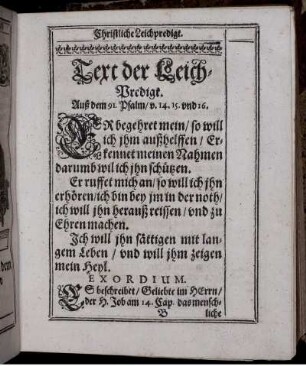 Christliche Leichpredigt.
Text der Leich-
Predigt.
Auß dem 91. Psalm / v. 14. 15. vnd 16.
ER begehret mein / so will
ich jhm außhelffen / Er-
kennet meinen Nahmen
darumb wil ich jhn schützen.
Er ruffet mich an / so will ich jhn
erhören / ich bin bey jm in der noth /
ich will jhn herauß reissen / vnd zu
Ehren machen.
Ich will jhn sättigen mit lan-
gem Leben / vnd will jhm zeigen
mein Heyl.
EXORDIUM.
ES beschreibet / Geliebte im HErrn /
der H. Job am 14. Cap. das mensch-
B liche